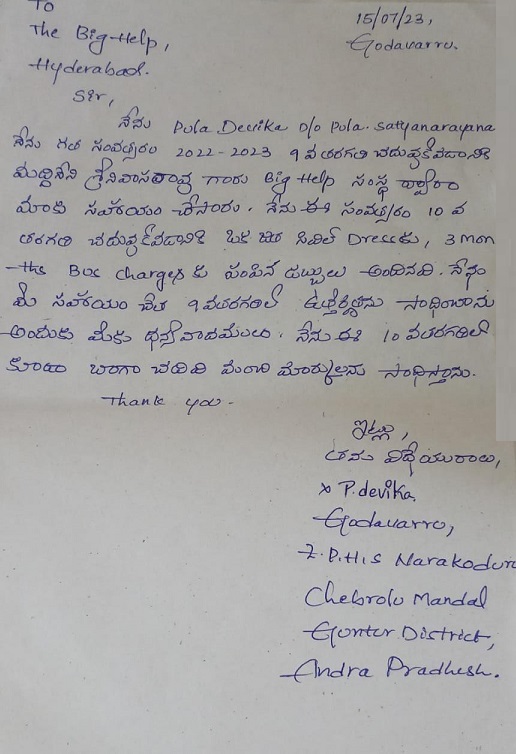 To
15/07/23,
The Big-Help,
Godavarru.
Hyderabad.
Sir,
నేను Pula Devika D/o Pula. Satyanarayana
నేను గత సంవత్సరం 2022-2023 9వ తరగతి చదువుకోవడానికి
మద్దినేని శ్రీనివాసరావు గారు Big Help సంస్థ ద్వారా
మాకు సహాయం చేసారు. నేను ఈ సంవత్సరం 10 వ
తరగతి చదువుకోవడానికి ఒక జత సివిల్ Dressకు, 3 mon
-ths Bus charges కు పంపిన డబ్బులు అందినవి. నేను
మీ సహాయం చేత 9వతరగతిలో ఉత్తీర్ణతను సాధించాను
అందుకు మీకు ధన్యవాదములు. నేను ఈ 10 వతరగతిలో
కూడా బాగా చదివి మంచి మార్కులను సాధిస్తాను.
Thank you.
ఇట్లు,
తమ విధేయురాలు,
x P.devika.
Godavarru,
Z.P.H.S Narakoduru
Chebrolu Mandal
Guntur District,
Andra Pradhesh.